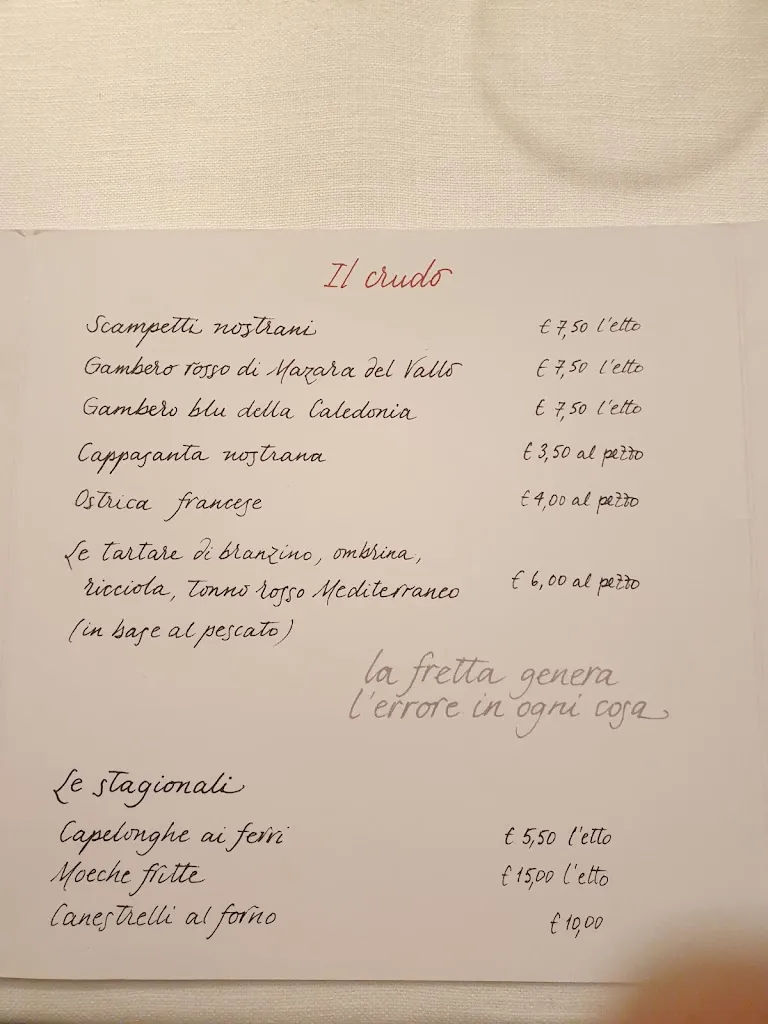 Il crudo
Scampetti nostrani € 7,50 l'etto
Gambero rosso di Mazara del Vallo € 7,50 l'etto
Gambero blu della Caledonia € 7,50 l'etto
Cappasanta nostrana € 3,50 al pezzo
Ostrica francese € 4,00 al pezzo
Le tartare di branzino, ombrina,
ricciola, tonno rosso Mediterraneo € 6,00 al pezzo
(in base al pescato)
la fretta genera
l'errore in ogni cosa
Le stagionali
Capelonghe ai ferri € 5,50 l'etto
Moeche fritte € 15,00 l'etto
Canestrelli al forno € 10,00